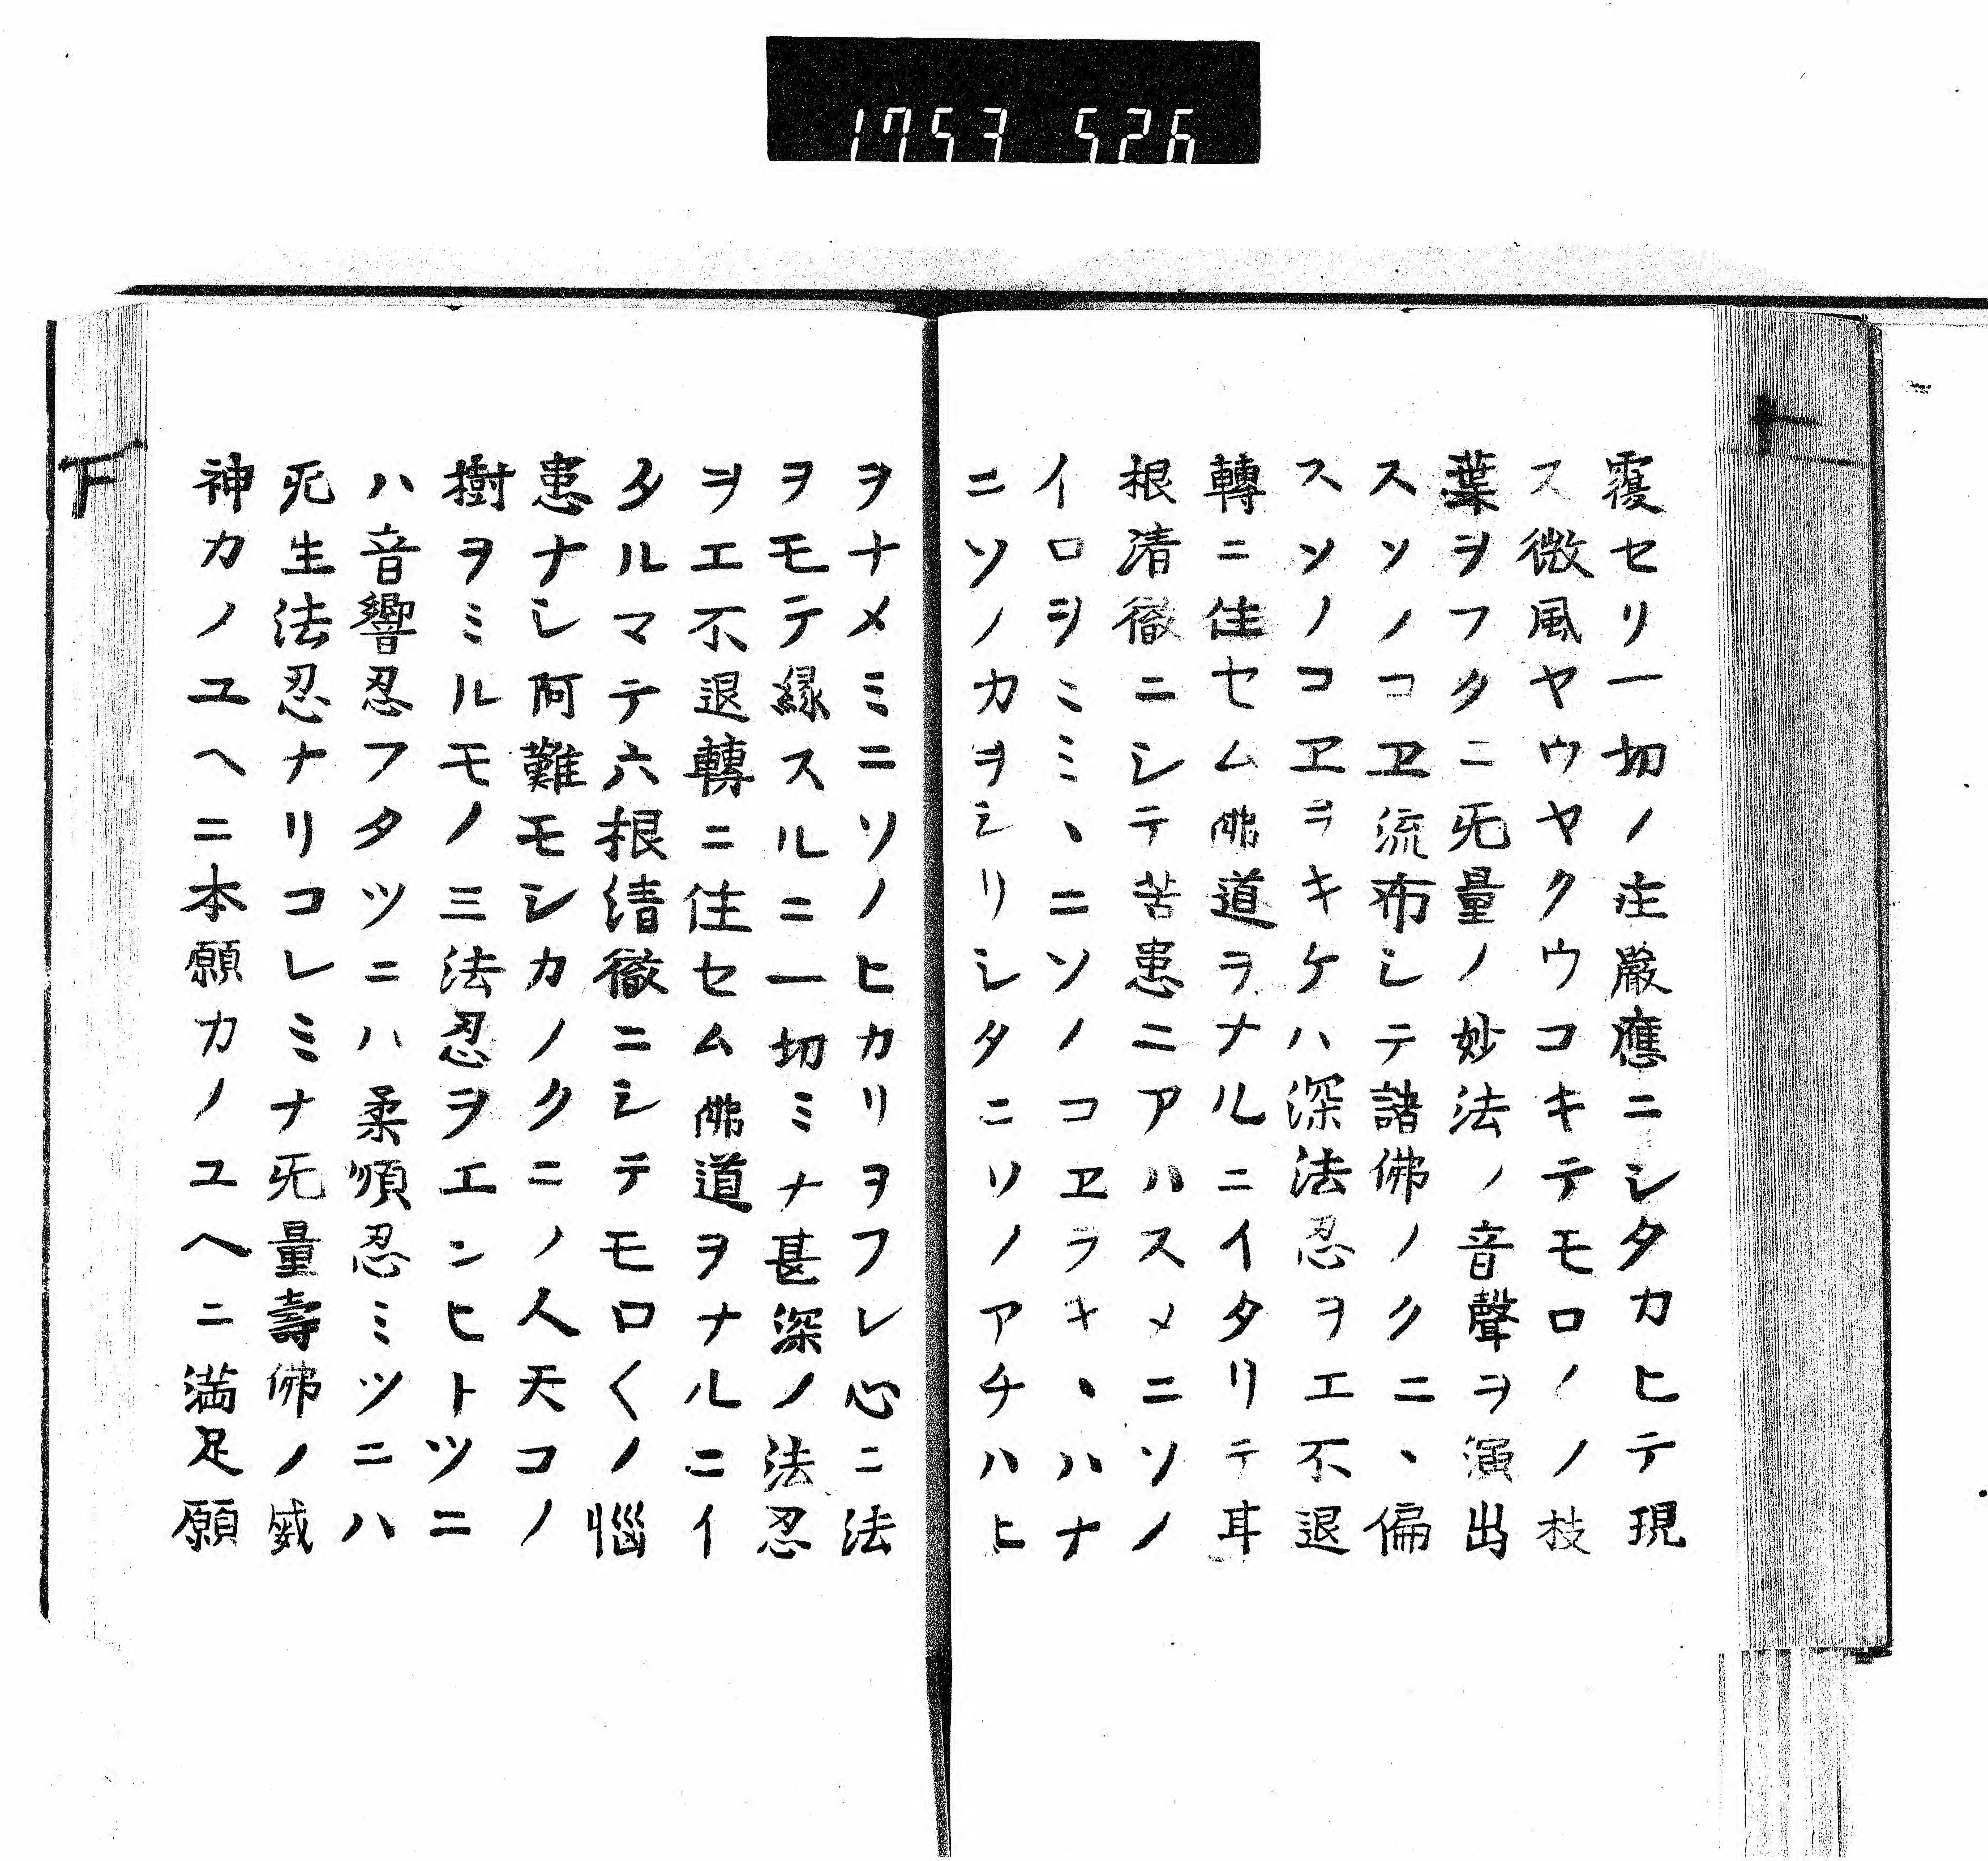 1753 526
覆セリ一切ノ庄厳應ニシタカヒテ現
ス微風ヤウヤクウコキテモロノノ枝
葉ヲフクニ旡量ノ妙法ノ音聲ヲ演出
スソノコヱ流布シテ諸佛ノクニヽ偏
スソノコヱヲキケハ深法忍ヲエ不退
轉ニ住セム佛道ヲナルニイタリテ耳
根清徹ニシテ苦患ニアハスメニソノ
イロヲミミヽニソノコヱヲキヽハナ
ニソノカヲシリシタニソノアチハヒ
ヲナメミニソノヒカリヲフレ心ニ法
ヲモテ縁スルニ一切ミナ甚深ノ法忍
ヲエ不退轉ニ住セム佛道ヲナルニイ
タルマテ六根清徹ニシテモロ〱ノ惱
患ナシ阿難モシカノクニノ人天コノ
樹ヲミルモノ三法忍ヲエンヒトツニ
ハ音響忍フタツニハ柔順忍ミツニハ
旡生法忍ナリコレミナ旡量壽佛ノ威
神カノユヘニ本願カノユヘニ満足願
下